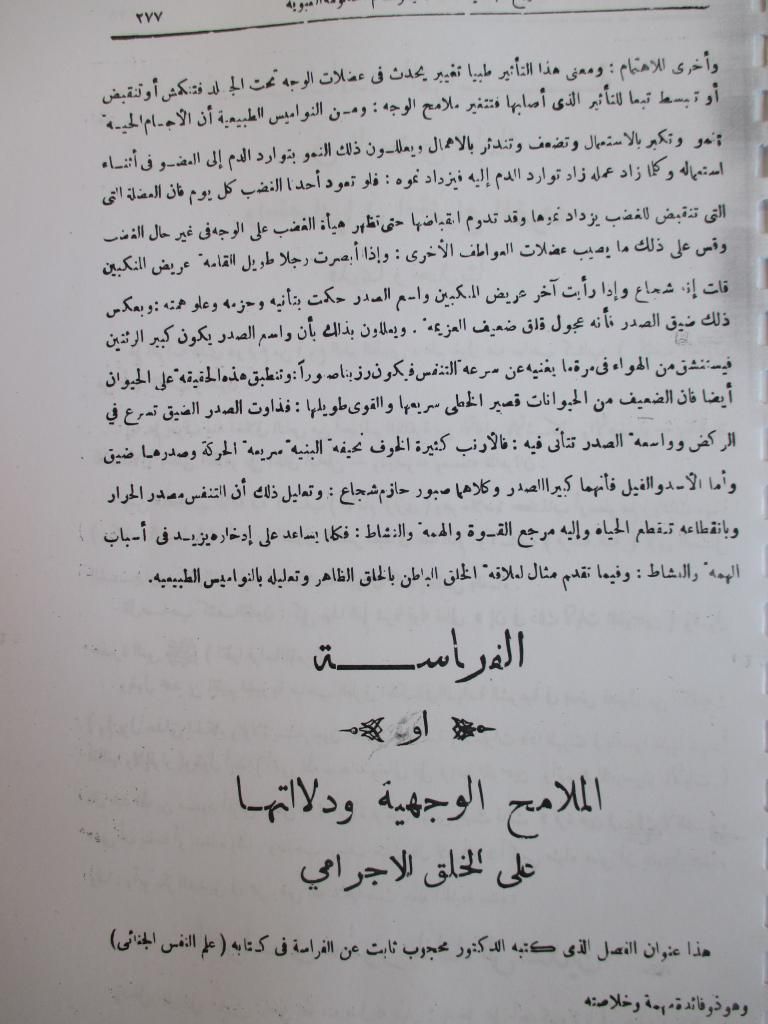 ٢٧٧
وأخرى للاهتمام : ومعنى هذا التأثير طبيا تغيير يحدث فى عضلات الوجه تحت الجلد فتنكمش أو تنقبض
أو تبسط تبعا للتأثير الذى أصابها فتتغير ملامح الوجه : ومن النواميس الطبيعية أن الأجسام الحية
تنمو وتكبر بالاستعمال وتضعف وتندثر بالاهمال ويعللون ذلك النمو بتوارد الدم إلى العضو فى أثناء
استعماله وكلما زاد عمله زاد توارد الدم إليه فيزداد نموه : فلو تعود أحدنا الغضب كل يوم فان العضلة التى
التى تنقبض للغضب يزداد نموها وقد تدوم انقباضها حتى تظهر هيأة الغضب على الوجه فى غير حال الغضب
وقس على ذلك ما يصيب عضلات العواطف الأخرى : وإذا أبصرت رجلا طويل القامة عريض المنكبين
قلت إنه شجاع وإذا رأيت آخر عريض المنكبين واسع الصدر حكمت بتأنيه وحزمه وعلو همته : وبعكس
ذلك ضيق الصدر فأنه عجول قلق ضعيف العزيمة . ويعللون بذلك بأن واسع الصدر يكون كبير الرئتين
فيستنشق من الهواء فى مرة ما يغنيه عن سرعة التنفس فيكون رزينا صوراً : وتنطبق هذه الحقيقة على الحيوان
أيضا فان الضعيف من الحيوانات قصير الخطى سريعها والقوى طويلها : فذاوت الصدر الضيق تسرع في
الركض وواسعة الصدر تتأنى فيه : فالأرنب كثيرة الخوف نحيفة البنية سريعة الحركة وصدرها ضيق
وأما الأسد والفيل فأنهما كبيرا الصدر وكلاهما صبور حازم شجاع : وتعليل ذلك أن التنفس مصدر الحرار
وبانقطاعه تنقطع الحياة وإليه مرجع القوة والهمة والنشاط : فكلما يساعد على إدخاره يزيد فى أسباب
الهمة والنشاط : وفيما تقدم مثال لعلاقة الخلق الباطن بالخلق الظاهر وتعليله بالنواميس الطبيعيه.
الفراسة
او
الملامح الوجهية ودلالتها
على الخلق الاجرامي
هذا عنوان الفصل الذى كتبه الدكتور محجوب ثابت عن الفراسة فى كتابه ( علم النفس الجنائى )
وهو ذو فائدة مهمة وخلاصته